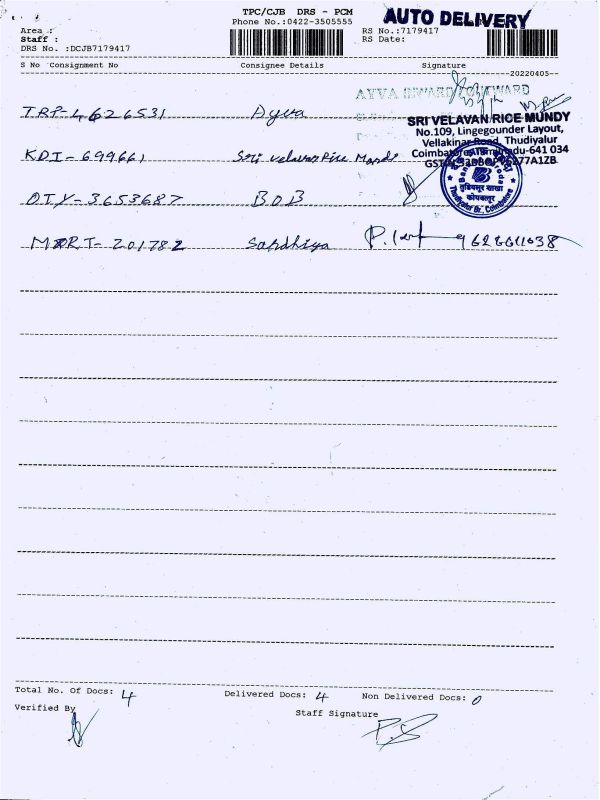 TPC/CJB DRS - PCM
AUTO DELIVERY
Phone No.:0422-3505555
Area :
RS No.:7179417
Staff :
RS Date:
DRS No. :DCJB7179417
S No Consignment No Consignee Details Signature
20220405
AYVA INWARD/OUTWARD
TRP-4626531 Ayva
SRI VELAVAN RICE MUNDY
No.109, Lingegounder Layout,
Vellakinar Road, Thudiyalur
Coimbatore, Tamilnadu-641 034
KDI-699661 Sri velavan Rice Mandi
OTY-3653687 BOB
तुडियलूर शाखा
कोयंबत्तूर
Thudiyalur Br., Coimbatore
MRT-201782 Sandhiya 9626611038
Total No. Of Docs: 4 Delivered Docs: 4 Non Delivered Docs: 0
Verified By
Staff Signature
P.S